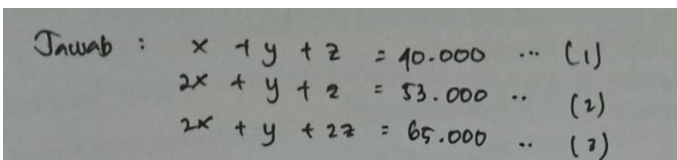 Jawab : x + y + z = 40.000 ... (1)
2x + y + z = 53.000 .. (2)
2x + y + 2z = 65.000 .. (3)